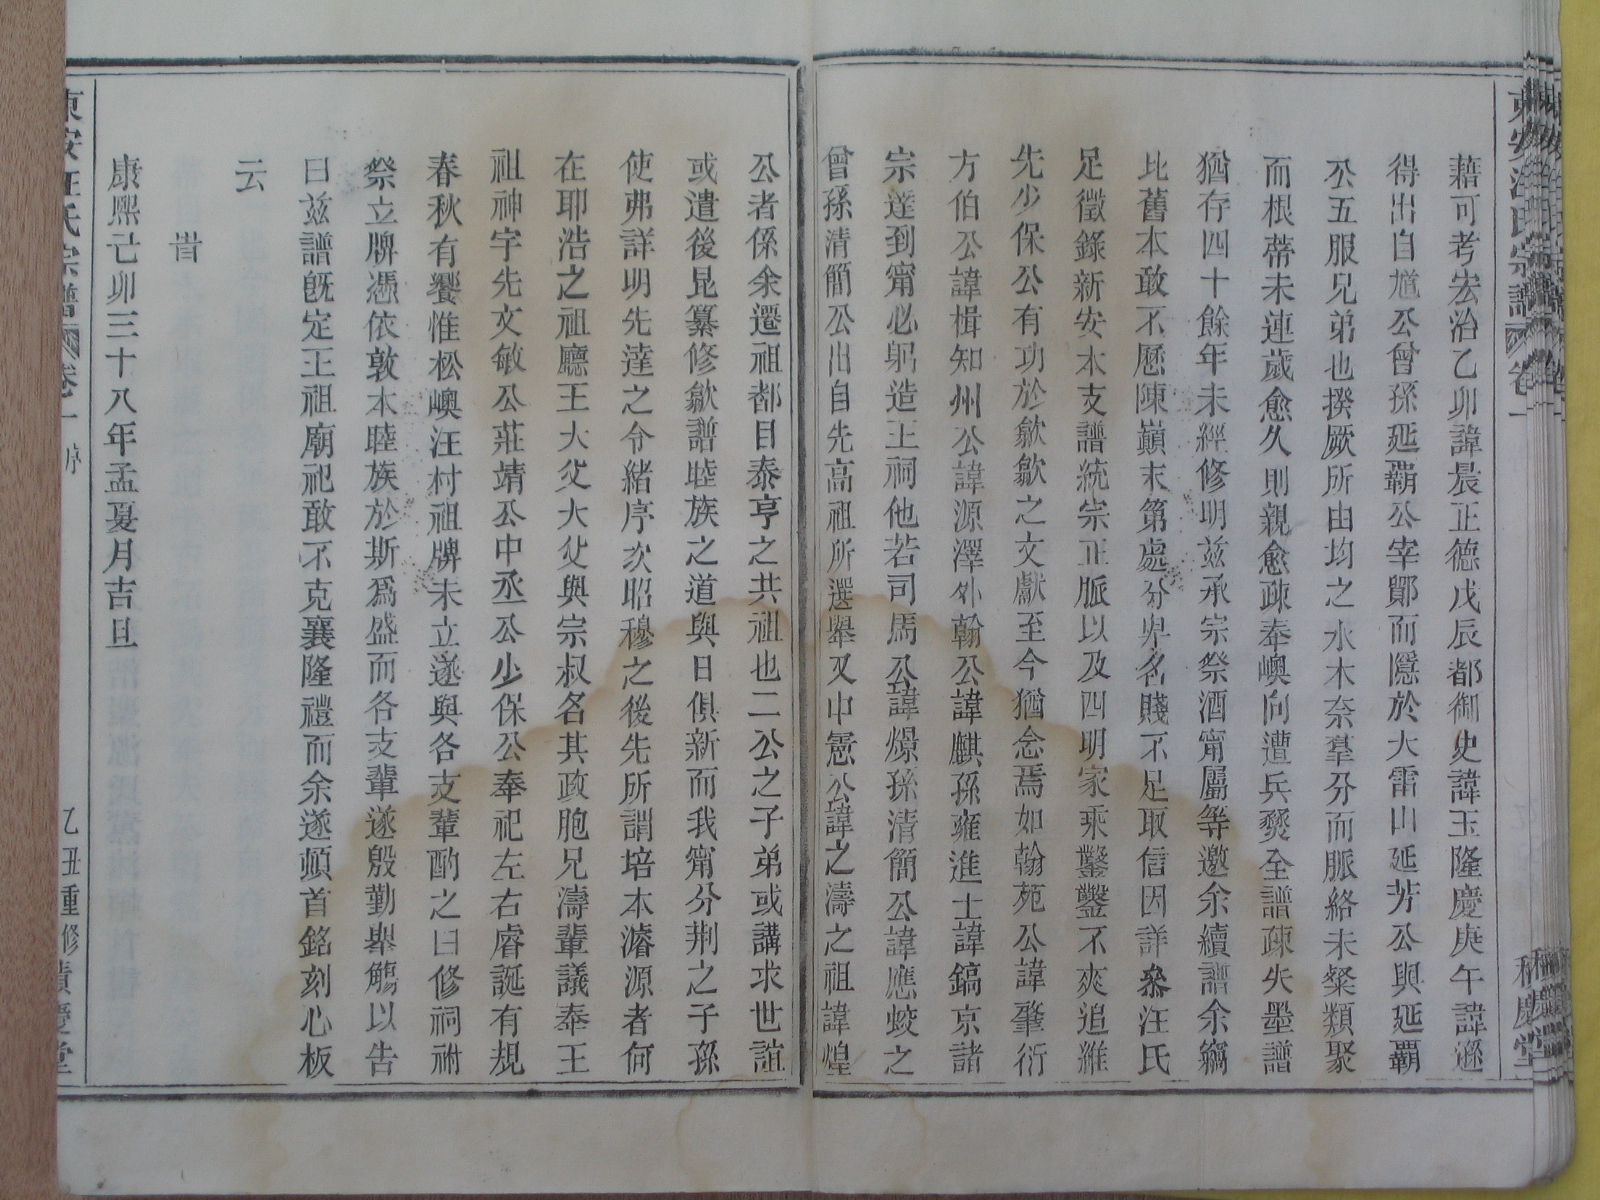 東安汪氏宗譜 卷一
積慶堂
藉可考宏治乙卯諱晨正德戊辰都御史諱玉隆慶庚午諱遜
得出自尷公曾孫延覇公宰鄞而隱於大雷山延芳公與延覇
公五服兄弟也揆厥所由均之水木奈羣分而脈絡未粲類聚
而根蒂未連歲愈久則親愈疎奉嶴向遭兵燹全譜疎失墨譜
猶存四十餘年未經修明玆承宗祭酒甯屬等邀余續譜余竊
比舊本敢不歷陳巔末第處分卑名賤不足取信因詳叅汪氏
足徵錄新安本支譜統宗正脈以及四明家乘鑿鑿不爽追維
先少保公有功於歙歙之文獻至今猶念焉如翰苑公諱肇衍
方伯公諱楫知州公諱源澤外翰公諱麒孫雍進士諱鎬京諸
宗達到甯必躬造玉祠他若司馬公諱燝孫清簡公諱應蛟之
曾孫清簡公出自先高祖所選舉又中憲公諱之濤之祖諱煌
公者係余遷祖都目泰亨之共祖也二公之子弟或講求世誼
或遣後昆纂修歙譜睦族之道與日俱新而我甯分荆之子孫
使弗詳明先達之令緒序次昭穆之後先所謂培本濬源者何
在耶浩之祖廳王大父大父與宗叔名其政胞兄濤輩議奉王
祖神字先文敏公莊靖公中丞公少保公奉祀左右睿誕有規
春秋有饗惟松嶴汪村祖牌未立遂與各支輩酌之曰修祠祔
祭立牌憑依敦本睦族於斯爲盛而各支輩遂殷勤舉觴以告
曰玆譜既定王祖廟祀敢不克襄隆禮而余遂頓首銘刻心板
云
旹
康熙己卯三十八年孟夏月吉旦
東安汪氏宗譜 卷一 序
乙丑重修積慶堂